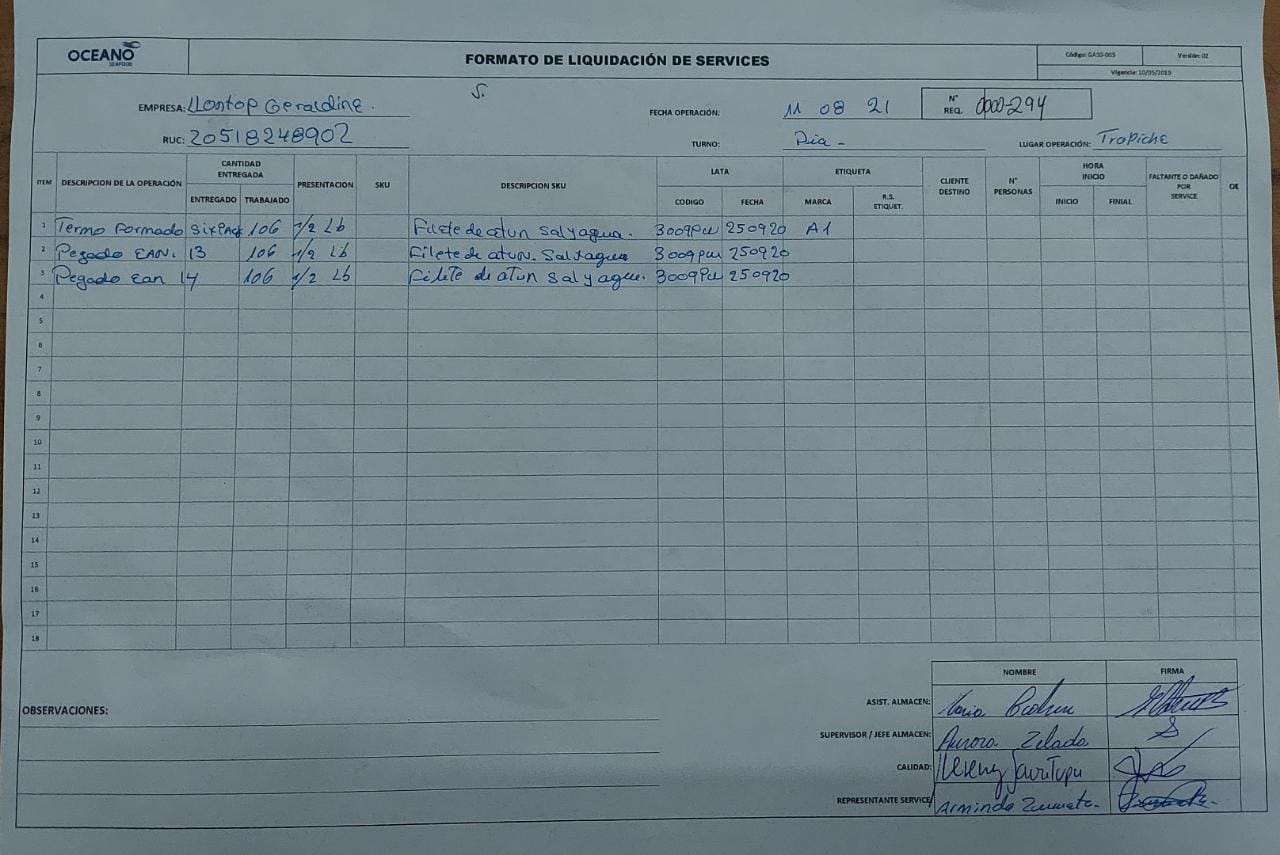 OCEANO
SEAFOOD
FORMATO DE LIQUIDACIÓN DE SERVICES
Código: GASS-065 Versión: 02
Vigencia: 10/05/2019
EMPRESA: LLontop Geraldine. S.
FECHA OPERACIÓN: 11 08 21
N° REQ. 0000-294
RUC: 20518248902
TURNO: Dia -
LUGAR OPERACIÓN: Tropiche
ITEM DESCRIPCION DE LA OPERACIÓN CANTIDAD ENTREGADA PRESENTACION SKU DESCRIPCION SKU LATA ETIQUETA CLIENTE DESTINO N° PERSONAS HORA INICIO FALTANTE O DAÑADO POR SERVICE OK
ENTREGADO TRABAJADO CODIGO FECHA MARCA R.S. ETIQUET. INICIO FINIAL
1 Termo Formado SixPack 106 1/2 Lb Filete de atun Sal y agua. 3009Pu 250920 A1
2 Pegado EAN. 13 106 1/2 Lb Filete de atun. Sal y agua 3009pu 250920
3 Pegado Ean 14 106 1/2 Lb Filete de atun Sal y agua. 3009Pu 250920
4
5
6
7
8
9
10
11
12
13
14
15
16
17
18
NOMBRE FIRMA
OBSERVACIONES:
ASIST. ALMACEN: Maria
SUPERVISOR / JEFE ALMACEN: Aurora Zelada
CALIDAD:
REPRESENTANTE SERVICE/ Arminda